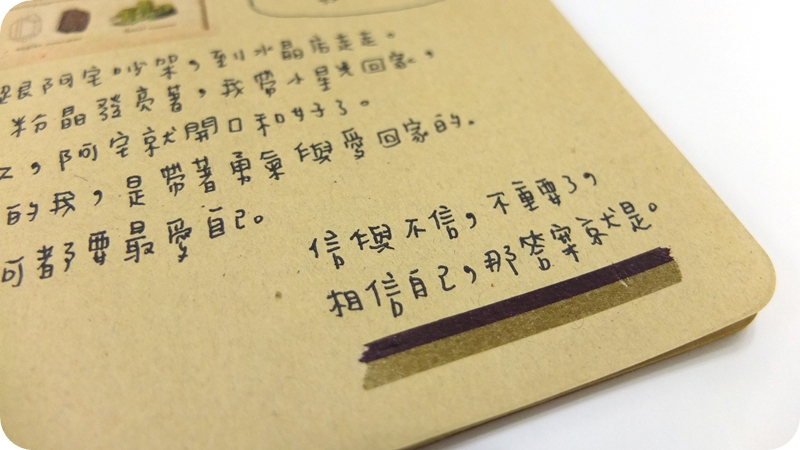 跟阿宅吵架，到水晶店走走。
粉晶發亮著，我帶小星光回家，
，阿宅就開口和好了。
的我，是帶著勇氣與愛回家的。
都要最愛自己。
信與不信，不重要了，
相信自己，那答案就是。